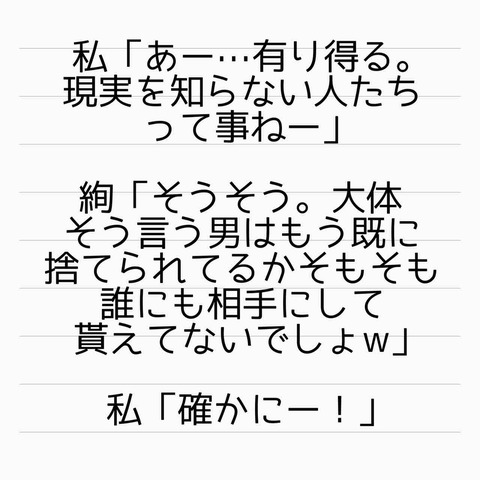 私「あー…有り得る。
現実を知らない人たち
って事ねー」
絢「そうそう。大体
そう言う男はもう既に
捨てられてるかそもそも
誰にも相手にして
貰えてないでしょw」
私「確かにー！」